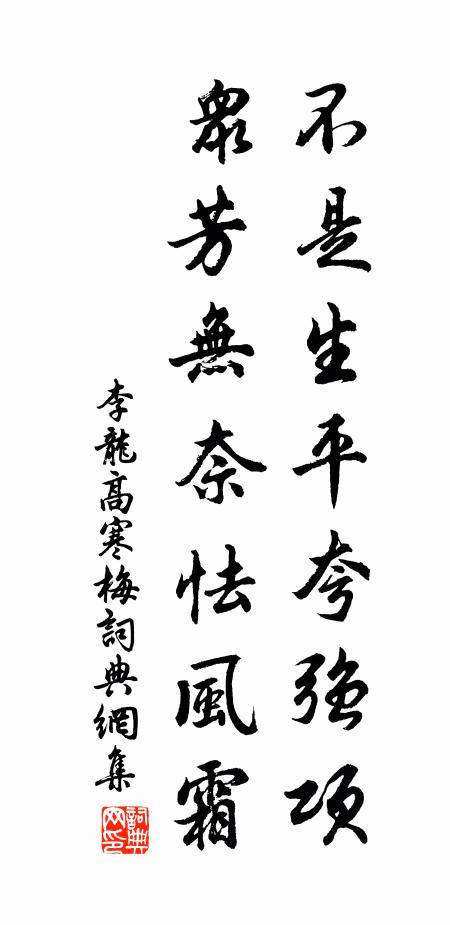 不是生平夸強項
衆芳無奈怯風霜
李龍高寒梅詞典網集
詞典网印